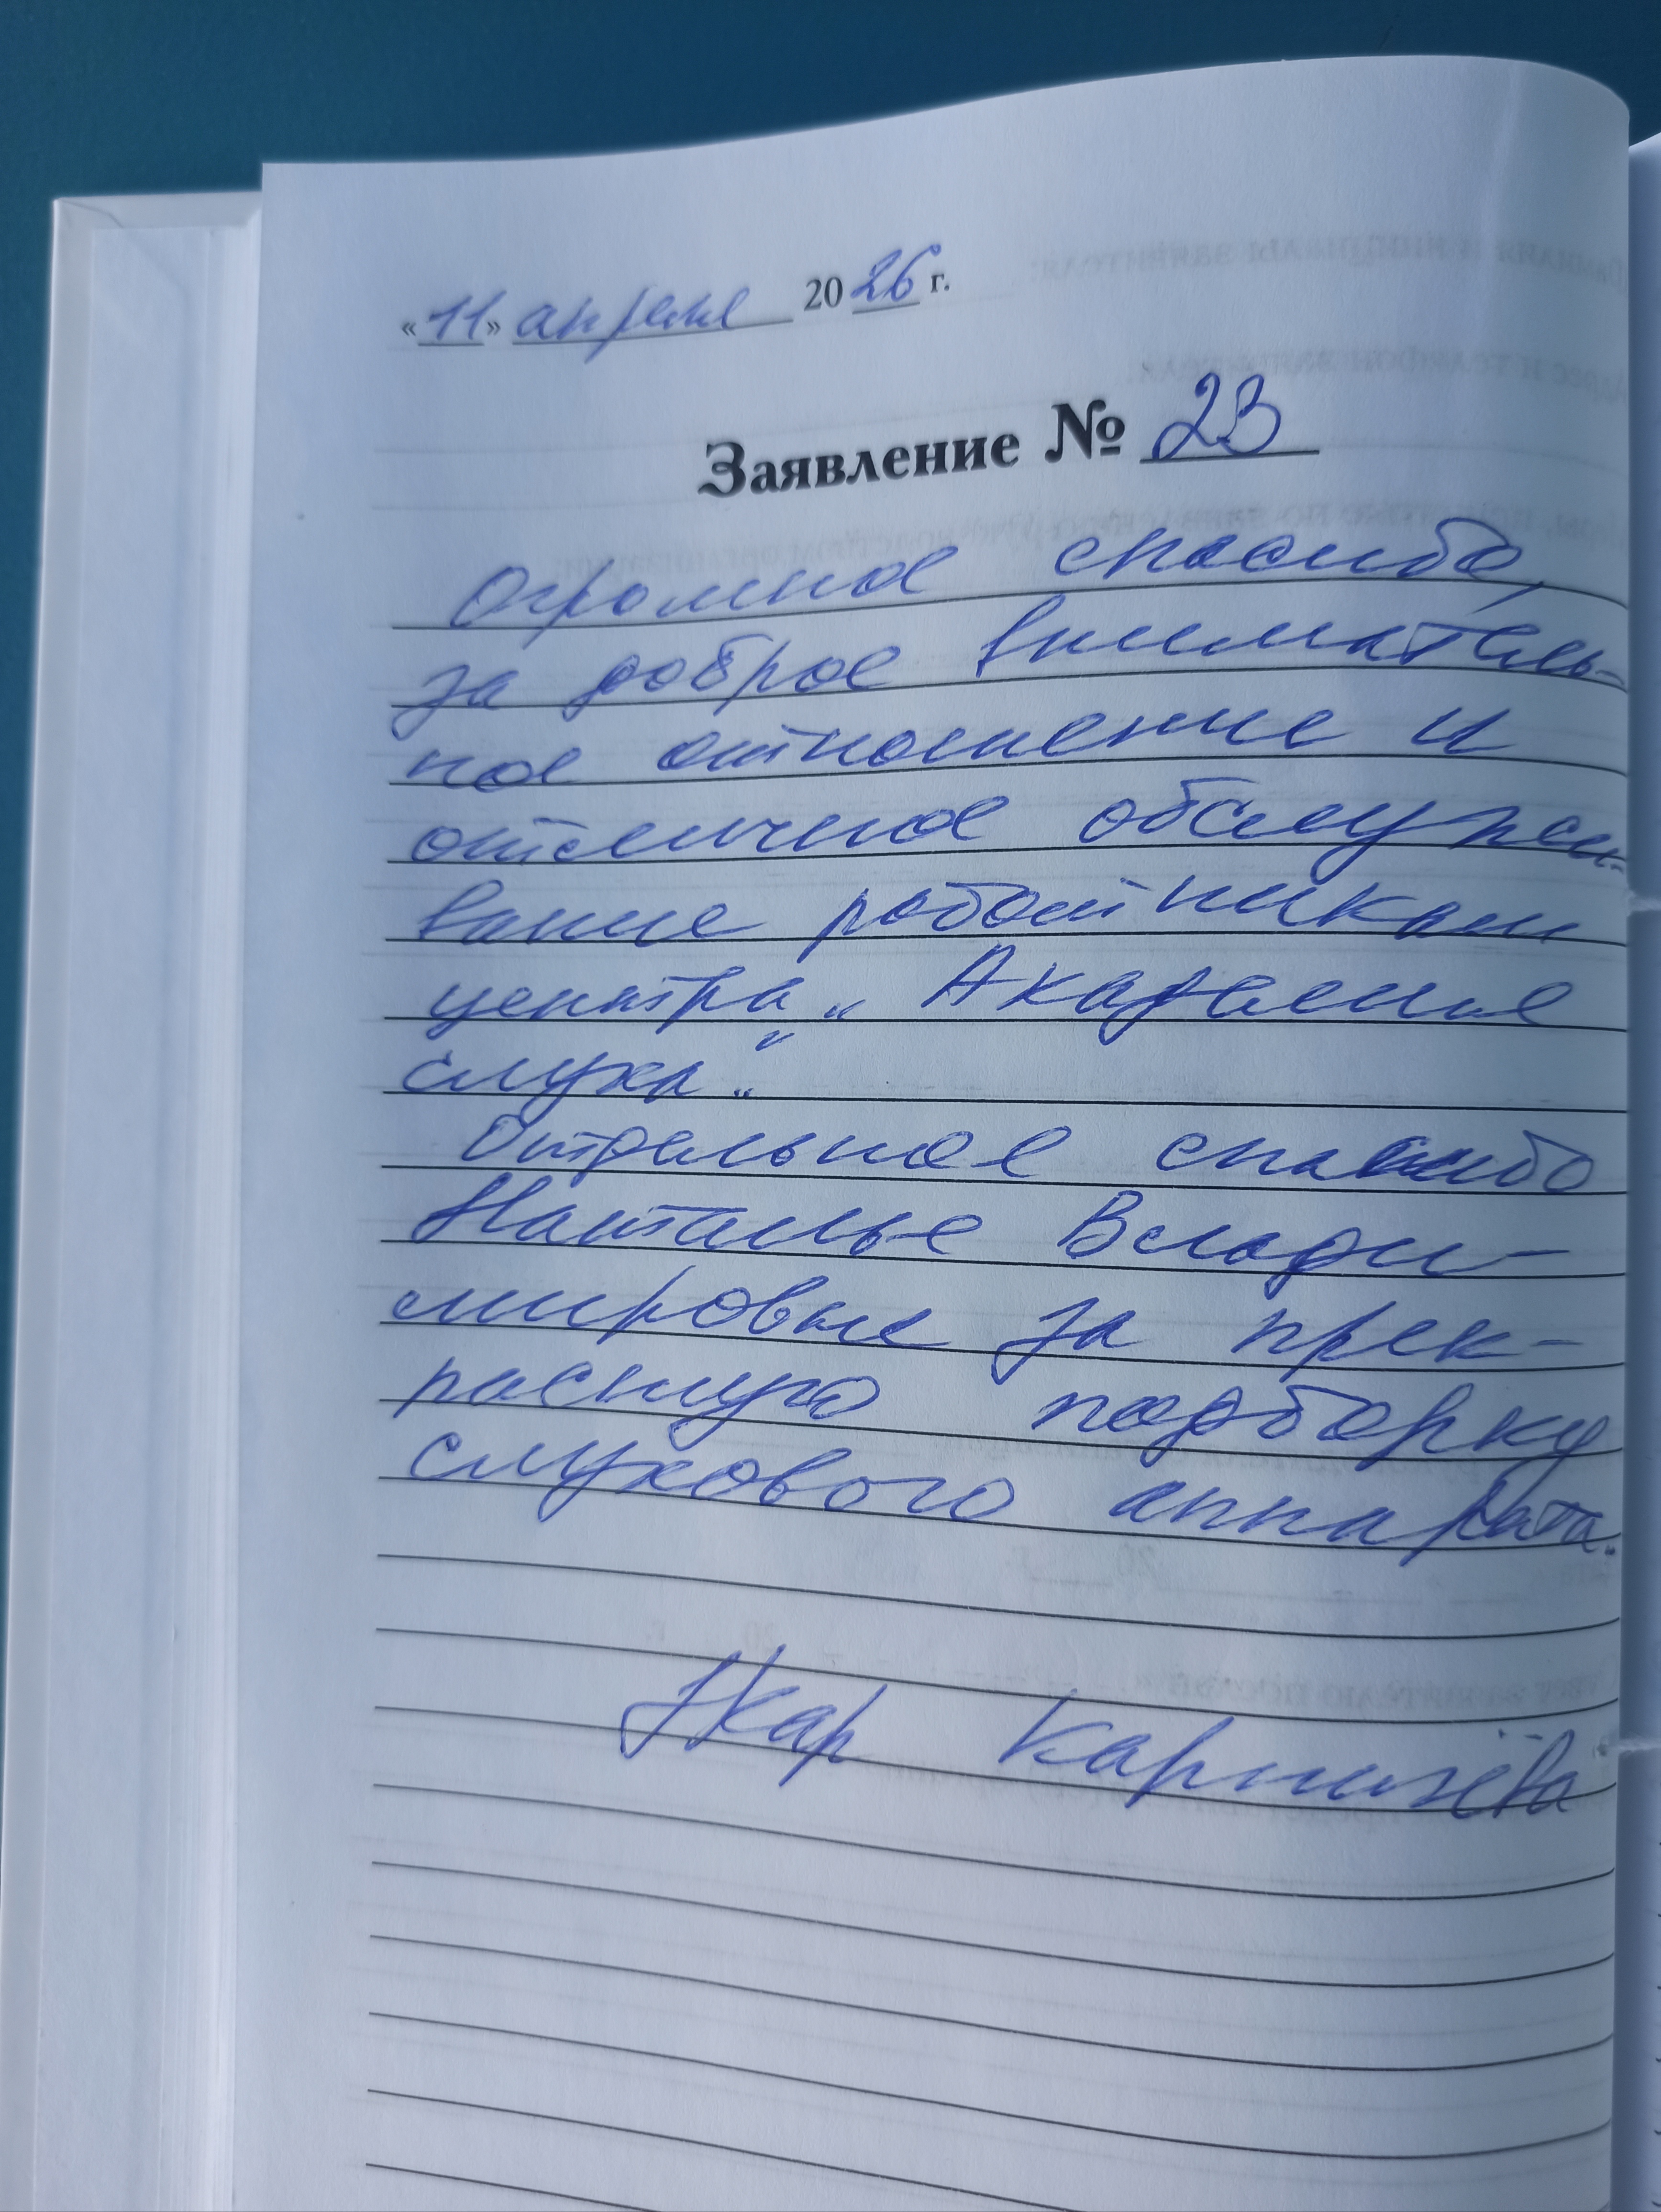 «11» апреля 2026 г.
Заявление № 23
Огромное спасибо,
за доброе вниматель-
ное отношение и
отличное обслужи-
вание работникам
центра „Академия
слуха".
Отдельное спасибо
Наталье Влади-
мировне за прек-
расную подборку
слухового аппарата.